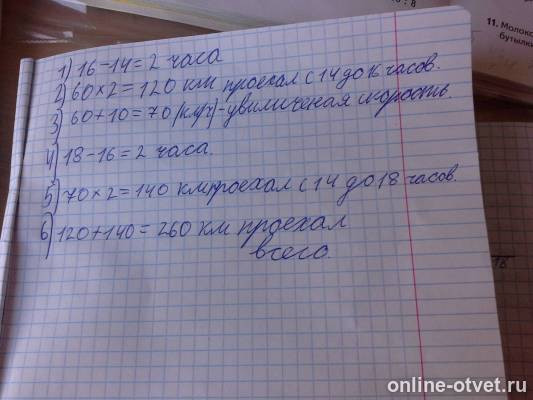 : 8
11. Молоко
бутылки
1) 16-14=2 часа
2) 60×2=120 км проехал с 14 до 16 часов.
3) 60+10=70 (км/ч)-увиличеная скорость.
4) 18-16=2 часа.
5) 70×2=140 км проехал с 14 до 18 часов.
6) 120+140=260 км проехал
всего.
18
online-otvet.ru